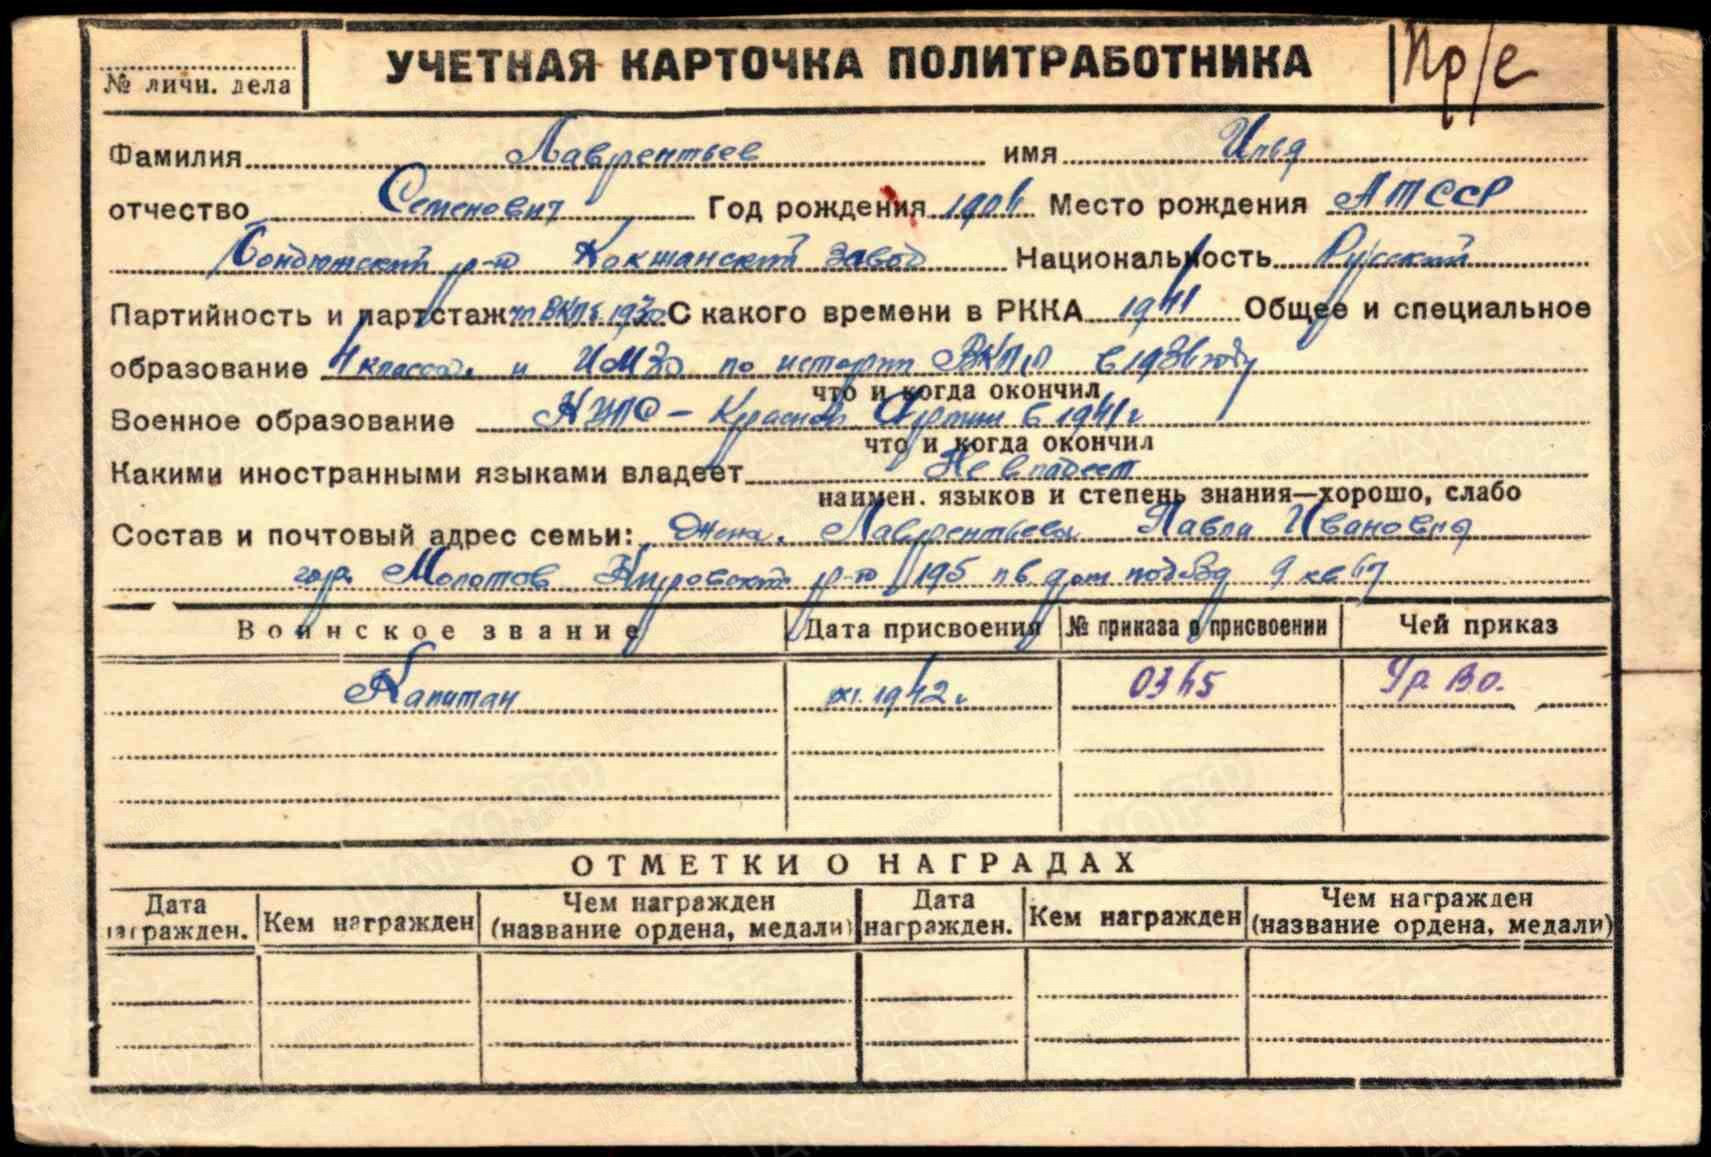 № личн. дела
УЧЕТНАЯ КАРТОЧКА ПОЛИТРАБОТНИКА
Пр/е
Фамилия Лаврентьев имя Илья
отчество Семенович Год рождения 1904 Место рождения АТССР
Бондюжский р-он Кокшанский завод Национальность Русский
Партийность и партстаж ВКПб 1930 С какого времени в РККА 1941 Общее и специальное
образование 4 класса и по истории ВКПб в 1936 году
что и когда окончил
Военное образование Красной Армии в 1941 г
что и когда окончил
Какими иностранными языками владеет Не владеет
наимен. языков и степень знания—хорошо, слабо
Состав и почтовый адрес семьи: Жена. Лаврентьева Павла Ивановна
гор. Молотов Кировский р-он 195 дом подъезд 9 кв 67
Воинское звание Дата присвоения № приказа о присвоении Чей приказ
Капитан XI. 1942 г 0345 Ур. ВО.
ОТМЕТКИ О НАГРАДАХ
Дата награжден. Кем награжден Чем награжден (название ордена, медали) Дата награжден. Кем награжден Чем награжден (название ордена, медали)